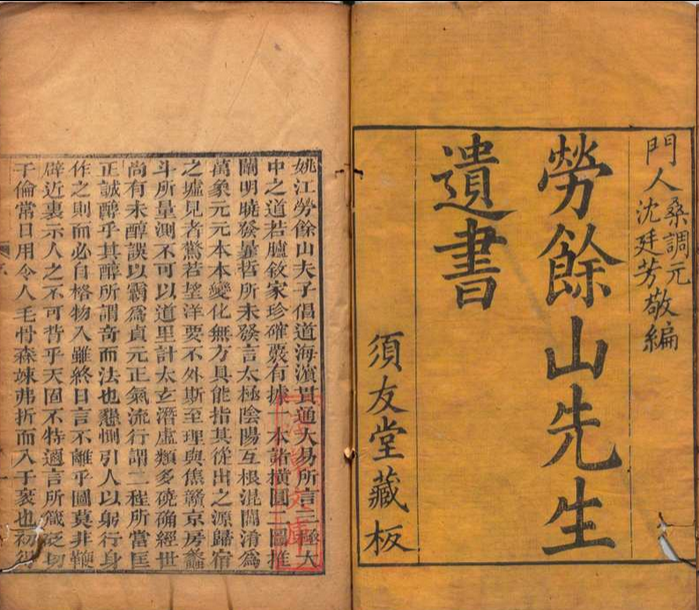 門人桑調元
沈廷芳敬編
勞餘山先生
遺書
須友堂藏板
姚江勞餘山夫子倡道海濱貫通大易所言三極大
中之道若臚敘家珍確覈有據一本諸橫圓二圖推
闡明曉發曩哲所未發言太極陰陽互根混闢淆爲
萬象元元本本變化無方具能指其從出之源歸宿
之墟見者驚若望洋要不外斯至理與焦贛京房蠡
斗所量測不可以道里計太玄潛虛類多硗确經世
尚有未醇誤以霸爲貞元正氣流行謂二程所當匡
正誠醇乎其醇所謂奇而法也懇惻引人以躬行身
作之則而必自格物入雖終日言不離乎圖莫非鞭
辟近裏示人之不可背乎天固不特適言所箴砭切
子倫常日用令人毛骨森竦弗折而入于衺也